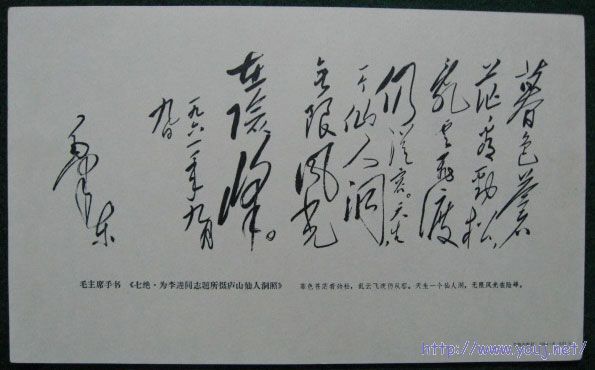 暮色蒼
茫看勁松,
亂云飛渡
仍從容。天生
一个仙人洞
无限風光
在險峰。
一九六一年九月
九日
毛泽东
毛主席手书 《七绝·为李进同志题所摄庐山仙人洞照》 暮色苍茫看劲松,乱云飞渡仍从容。天生一个仙人洞,无限风光在险峰。
http://www.youj.net/